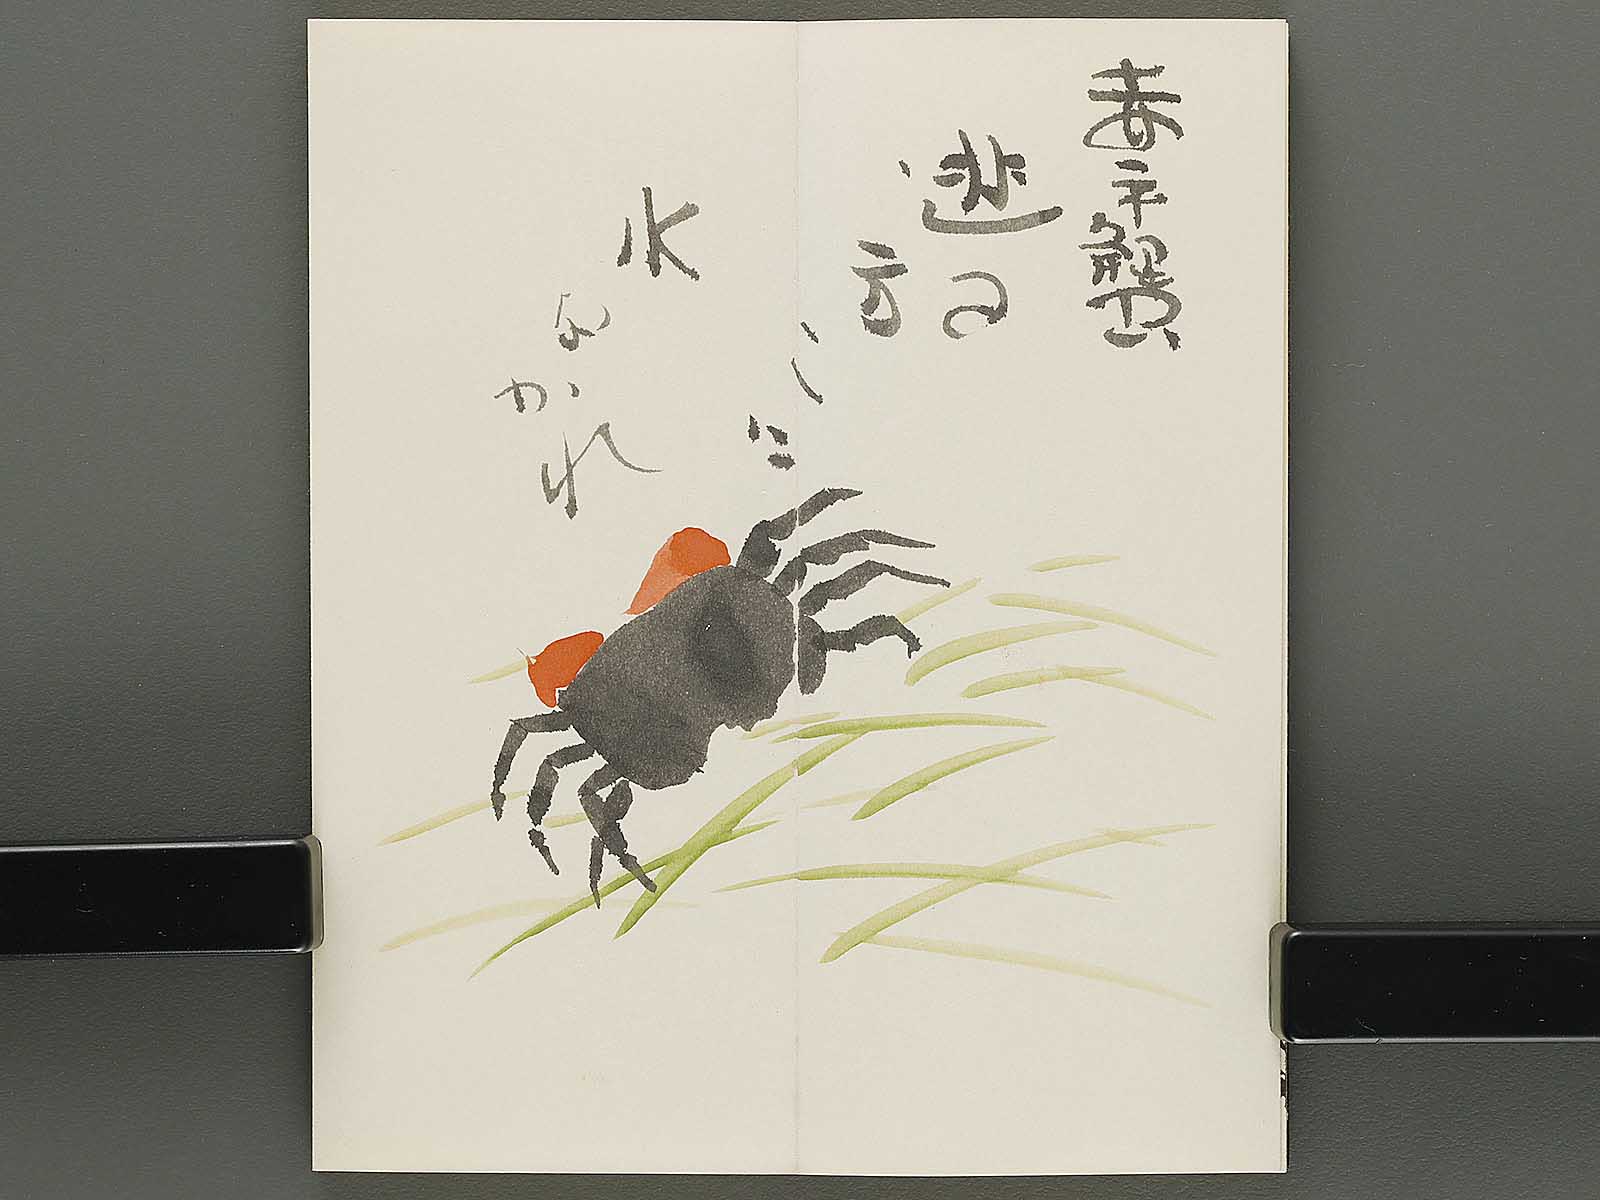 赤手蟹
逃る
方へに
水
ながれ